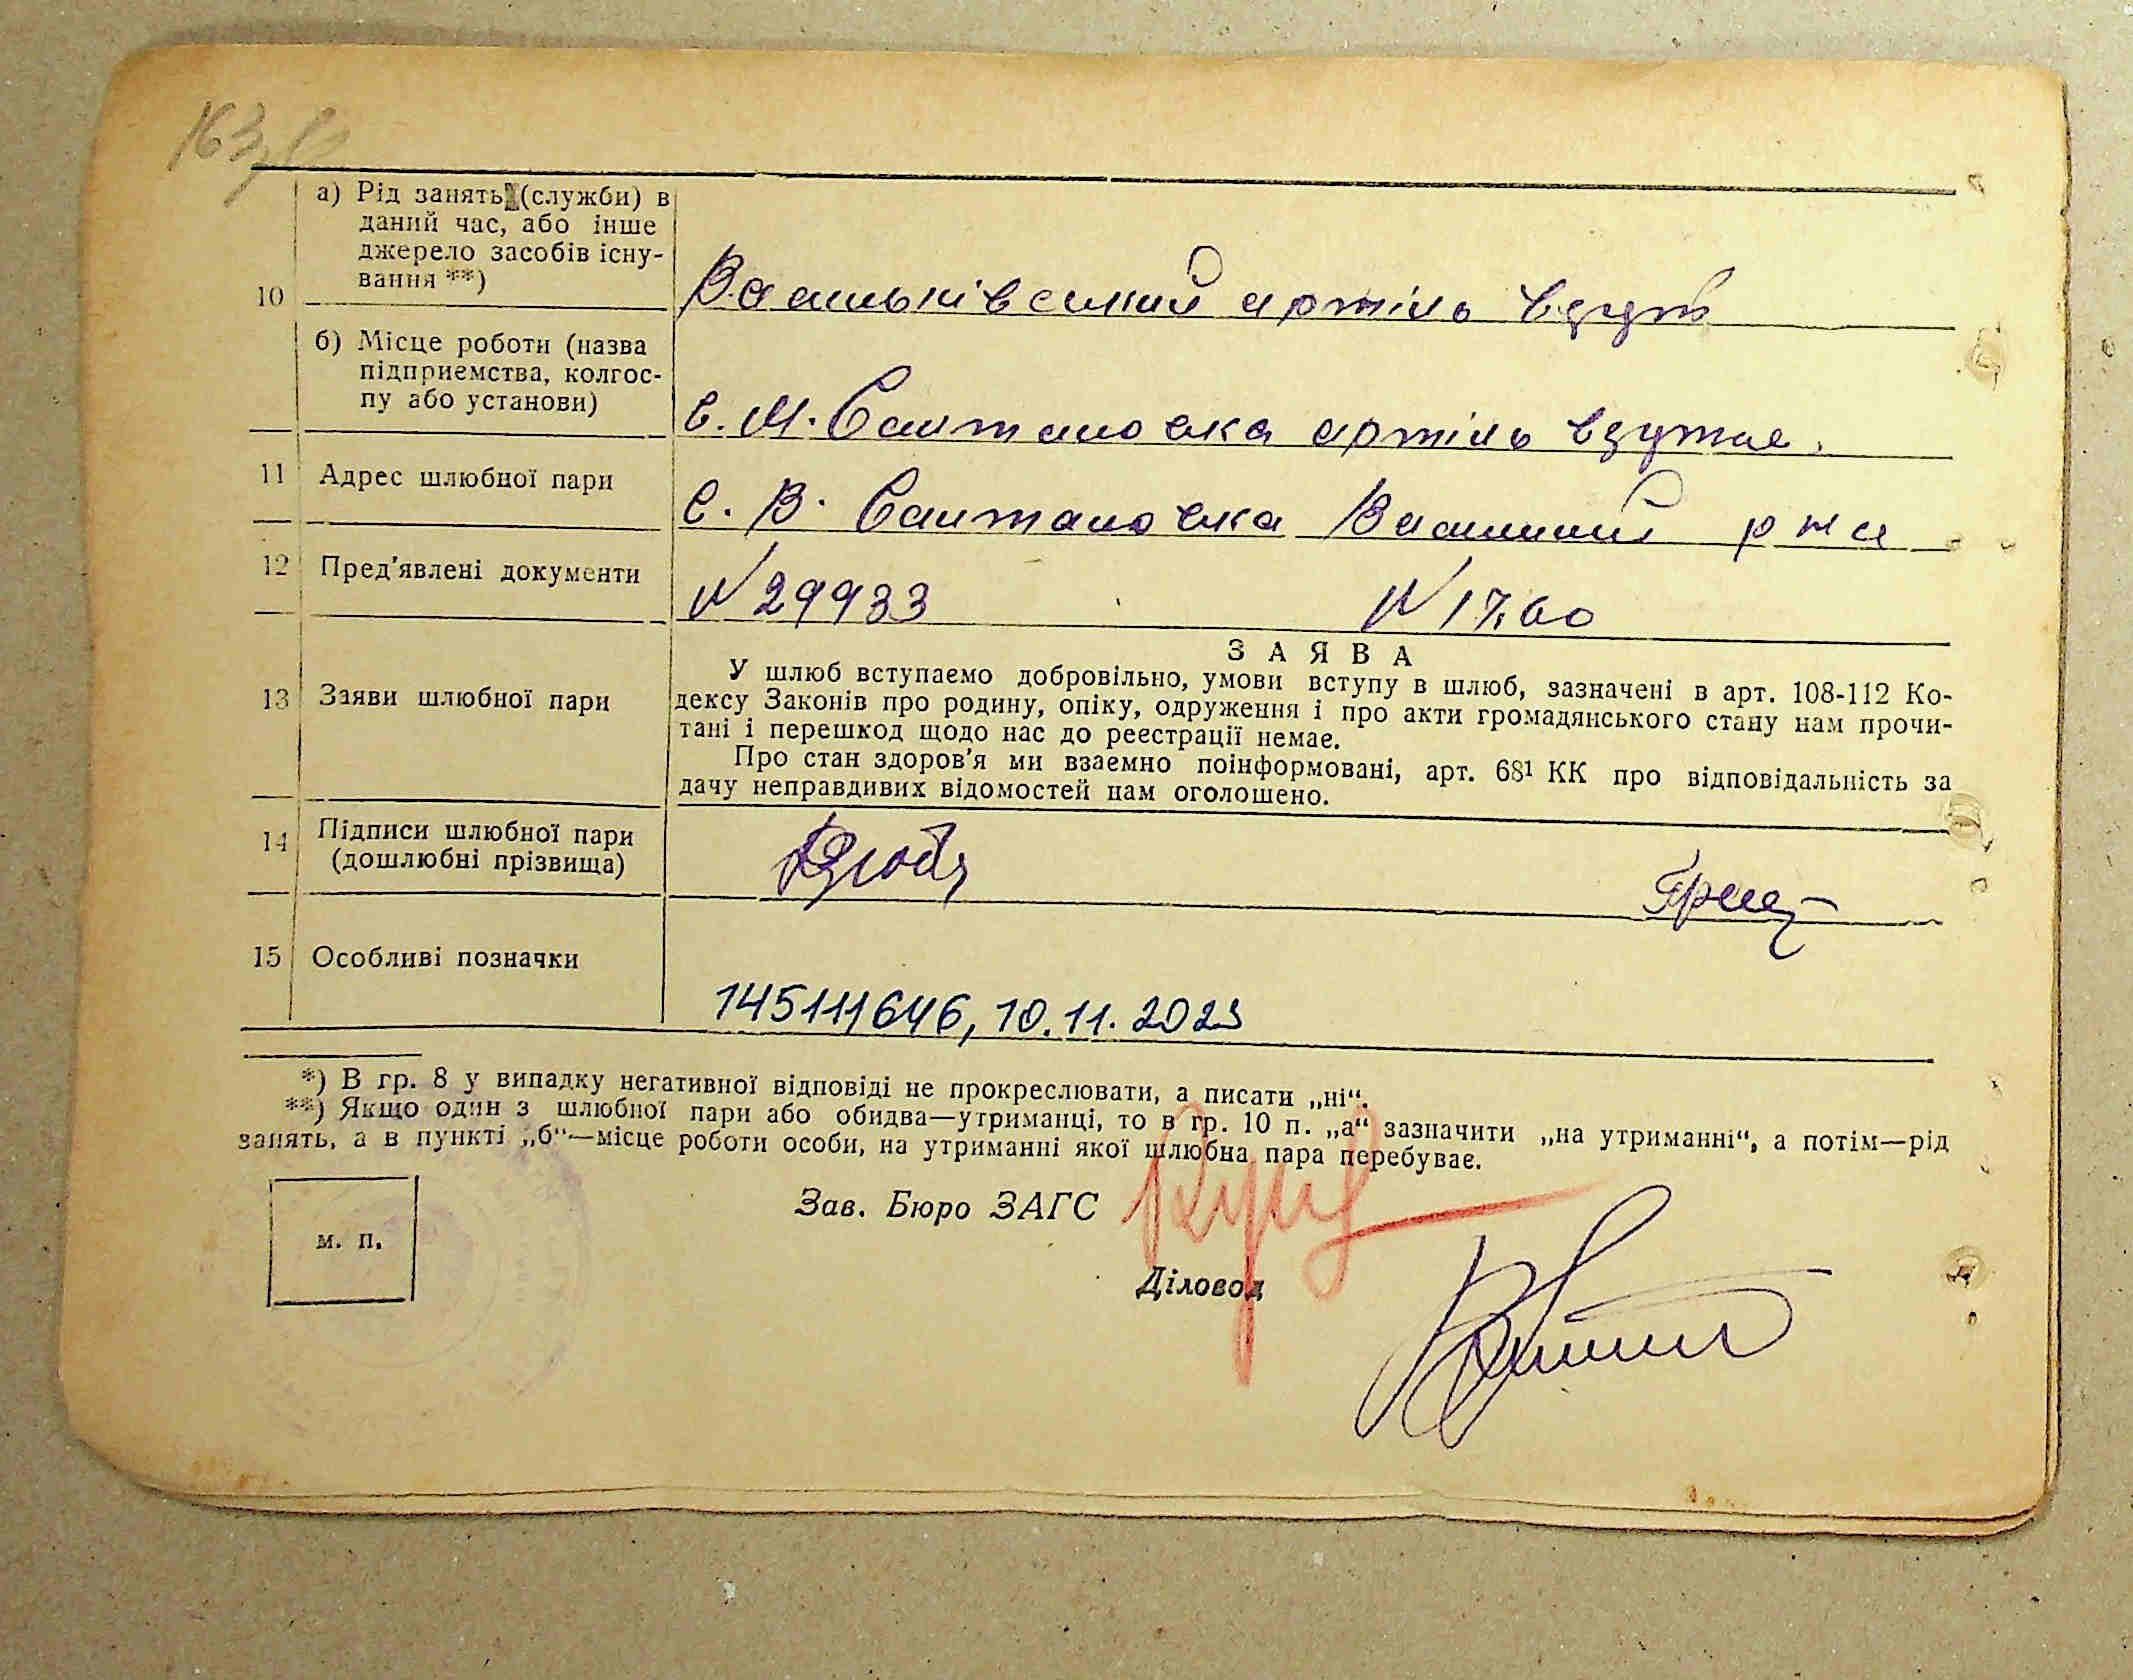 163
а) Рід занять (служби) в
даний час, або інше
джерело засобів існу-
вання **)
10
Васильківський артіль взут
б) Місце роботи (назва
підприємства, колгос-
пу або установи)
С. М. Салтановка артіль взуттє.
11 Адрес шлюбної пари
С. В. Салтановка Василький р на
12 Пред'явлені документи
N 29933 N 1760
13 Заяви шлюбної пари
ЗАЯВА
У шлюб вступаємо добровільно, умови вступу в шлюб, зазначені в арт. 108-112 Ко-
дексу Законів про родину, опіку, одруження і про акти громадянського стану нам прочи-
тані і перешкод щодо нас до реєстрації немає.
Про стан здоров'я ми взаємно поінформовані, арт. 68¹ КК про відповідальність за
дачу неправдивих відомостей нам оголошено.
14 Підписи шлюбної пари
(дошлюбні прізвища)
15 Особливі позначки
145111646, 10.11.2023
*) В гр. 8 у випадку негативної відповіді не прокреслювати, а писати „ні“.
**) Якщо один з шлюбної пари або обидва—утриманці, то в гр. 10 п. „а“ зазначити „на утриманні“, а потім—рід
занять, а в пункті „б“—місце роботи особи, на утриманні якої шлюбна пара перебуває.
м. п.
Зав. Бюро ЗАГС
Діловод